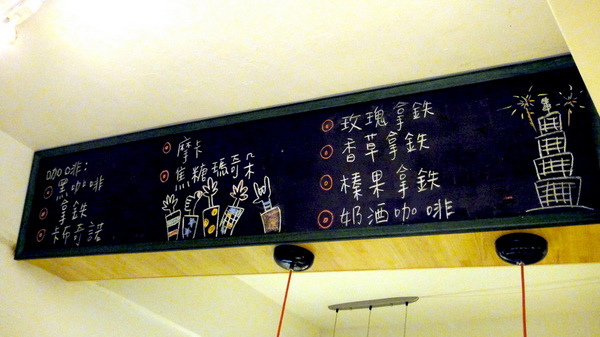 咖啡:
黑咖啡
拿鉄
卡布奇諾
摩卡
焦糖瑪奇朵
玫瑰拿鉄
香草拿鉄
榛果拿鉄
奶酒咖啡